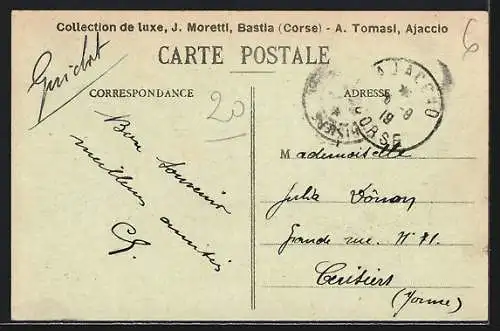 Collection de luxe, J. Moretti, Bastia (Corse) - A. Tomasi, Ajaccio
6
CARTE POSTALE
CORRESPONDANCE
20
ADRESSE
AJACCIO
CORSE
Bon souvenir
meilleures amitiés
CG.
Mademoiselle
Julia
Grande rue. N° 71.
Cerisiers
(Yonne)